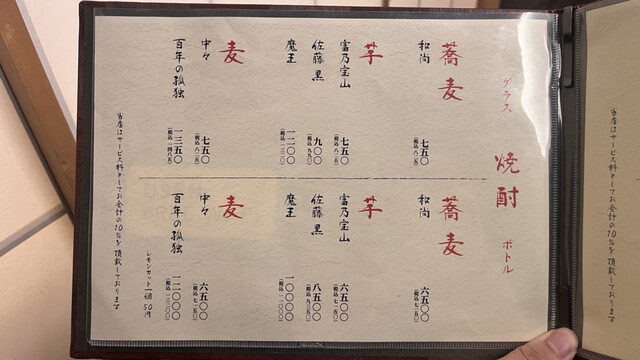 焼酎
グラス
蕎麦
和尚 七五〇
(税込 八二五)
芋
富乃宝山 七五〇
(税込 八二五)
佐藤 黒 九〇〇
(税込 九九〇)
魔王 一二〇〇
(税込 一三二〇)
麦
中々 七五〇
(税込 八二五)
百年の孤独 一三五〇
(税込 一四八五)
ボトル
蕎麦
和尚 六五〇〇
(税込 七一五〇)
芋
富乃宝山 六五〇〇
(税込 七一五〇)
佐藤 黒 八五〇〇
(税込 九三五〇)
魔王 一〇〇〇〇
(税込 一一〇〇〇)
麦
中々 六五〇〇
(税込 七一五〇)
百年の孤独 一二〇〇〇
(税込 一三二〇〇)
レモンカット一個 50円
当店はサービス料としてお会計の10%を頂戴しております
当店はサービス料としてお会計の10%を頂戴しております